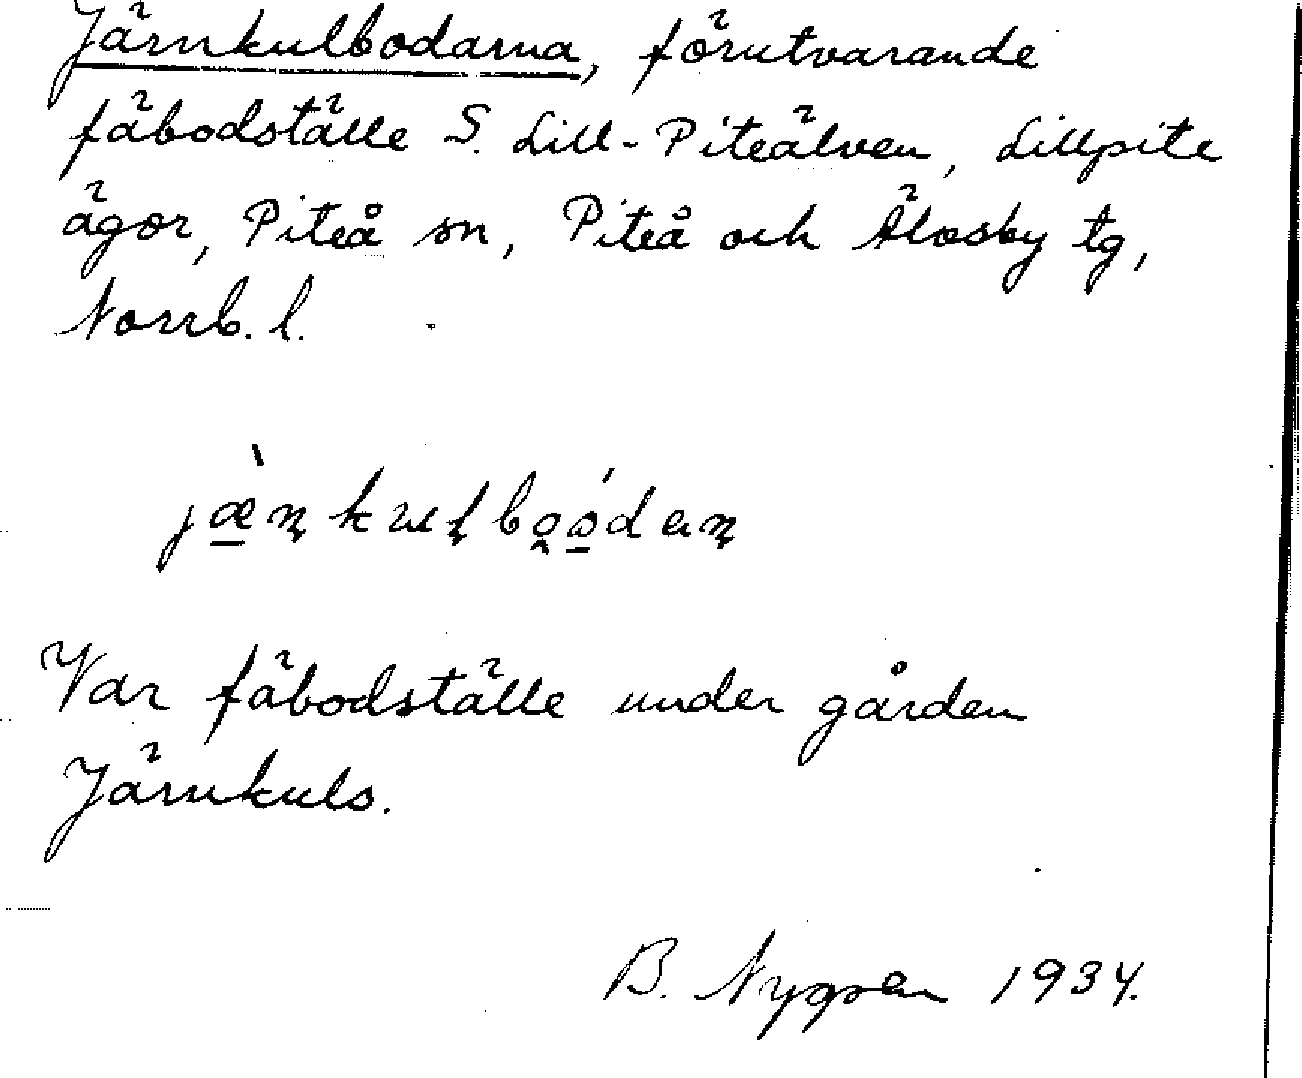 Järnkulbodarna, förutvarande
fäbodställe S. Lill-Piteälven, Lillpite
ägor, Piteå sn, Piteå och Älvsby tg,
Norrb. l.
Var fäbodställe under gården
Järnkuls.
B. Nygren 1934.